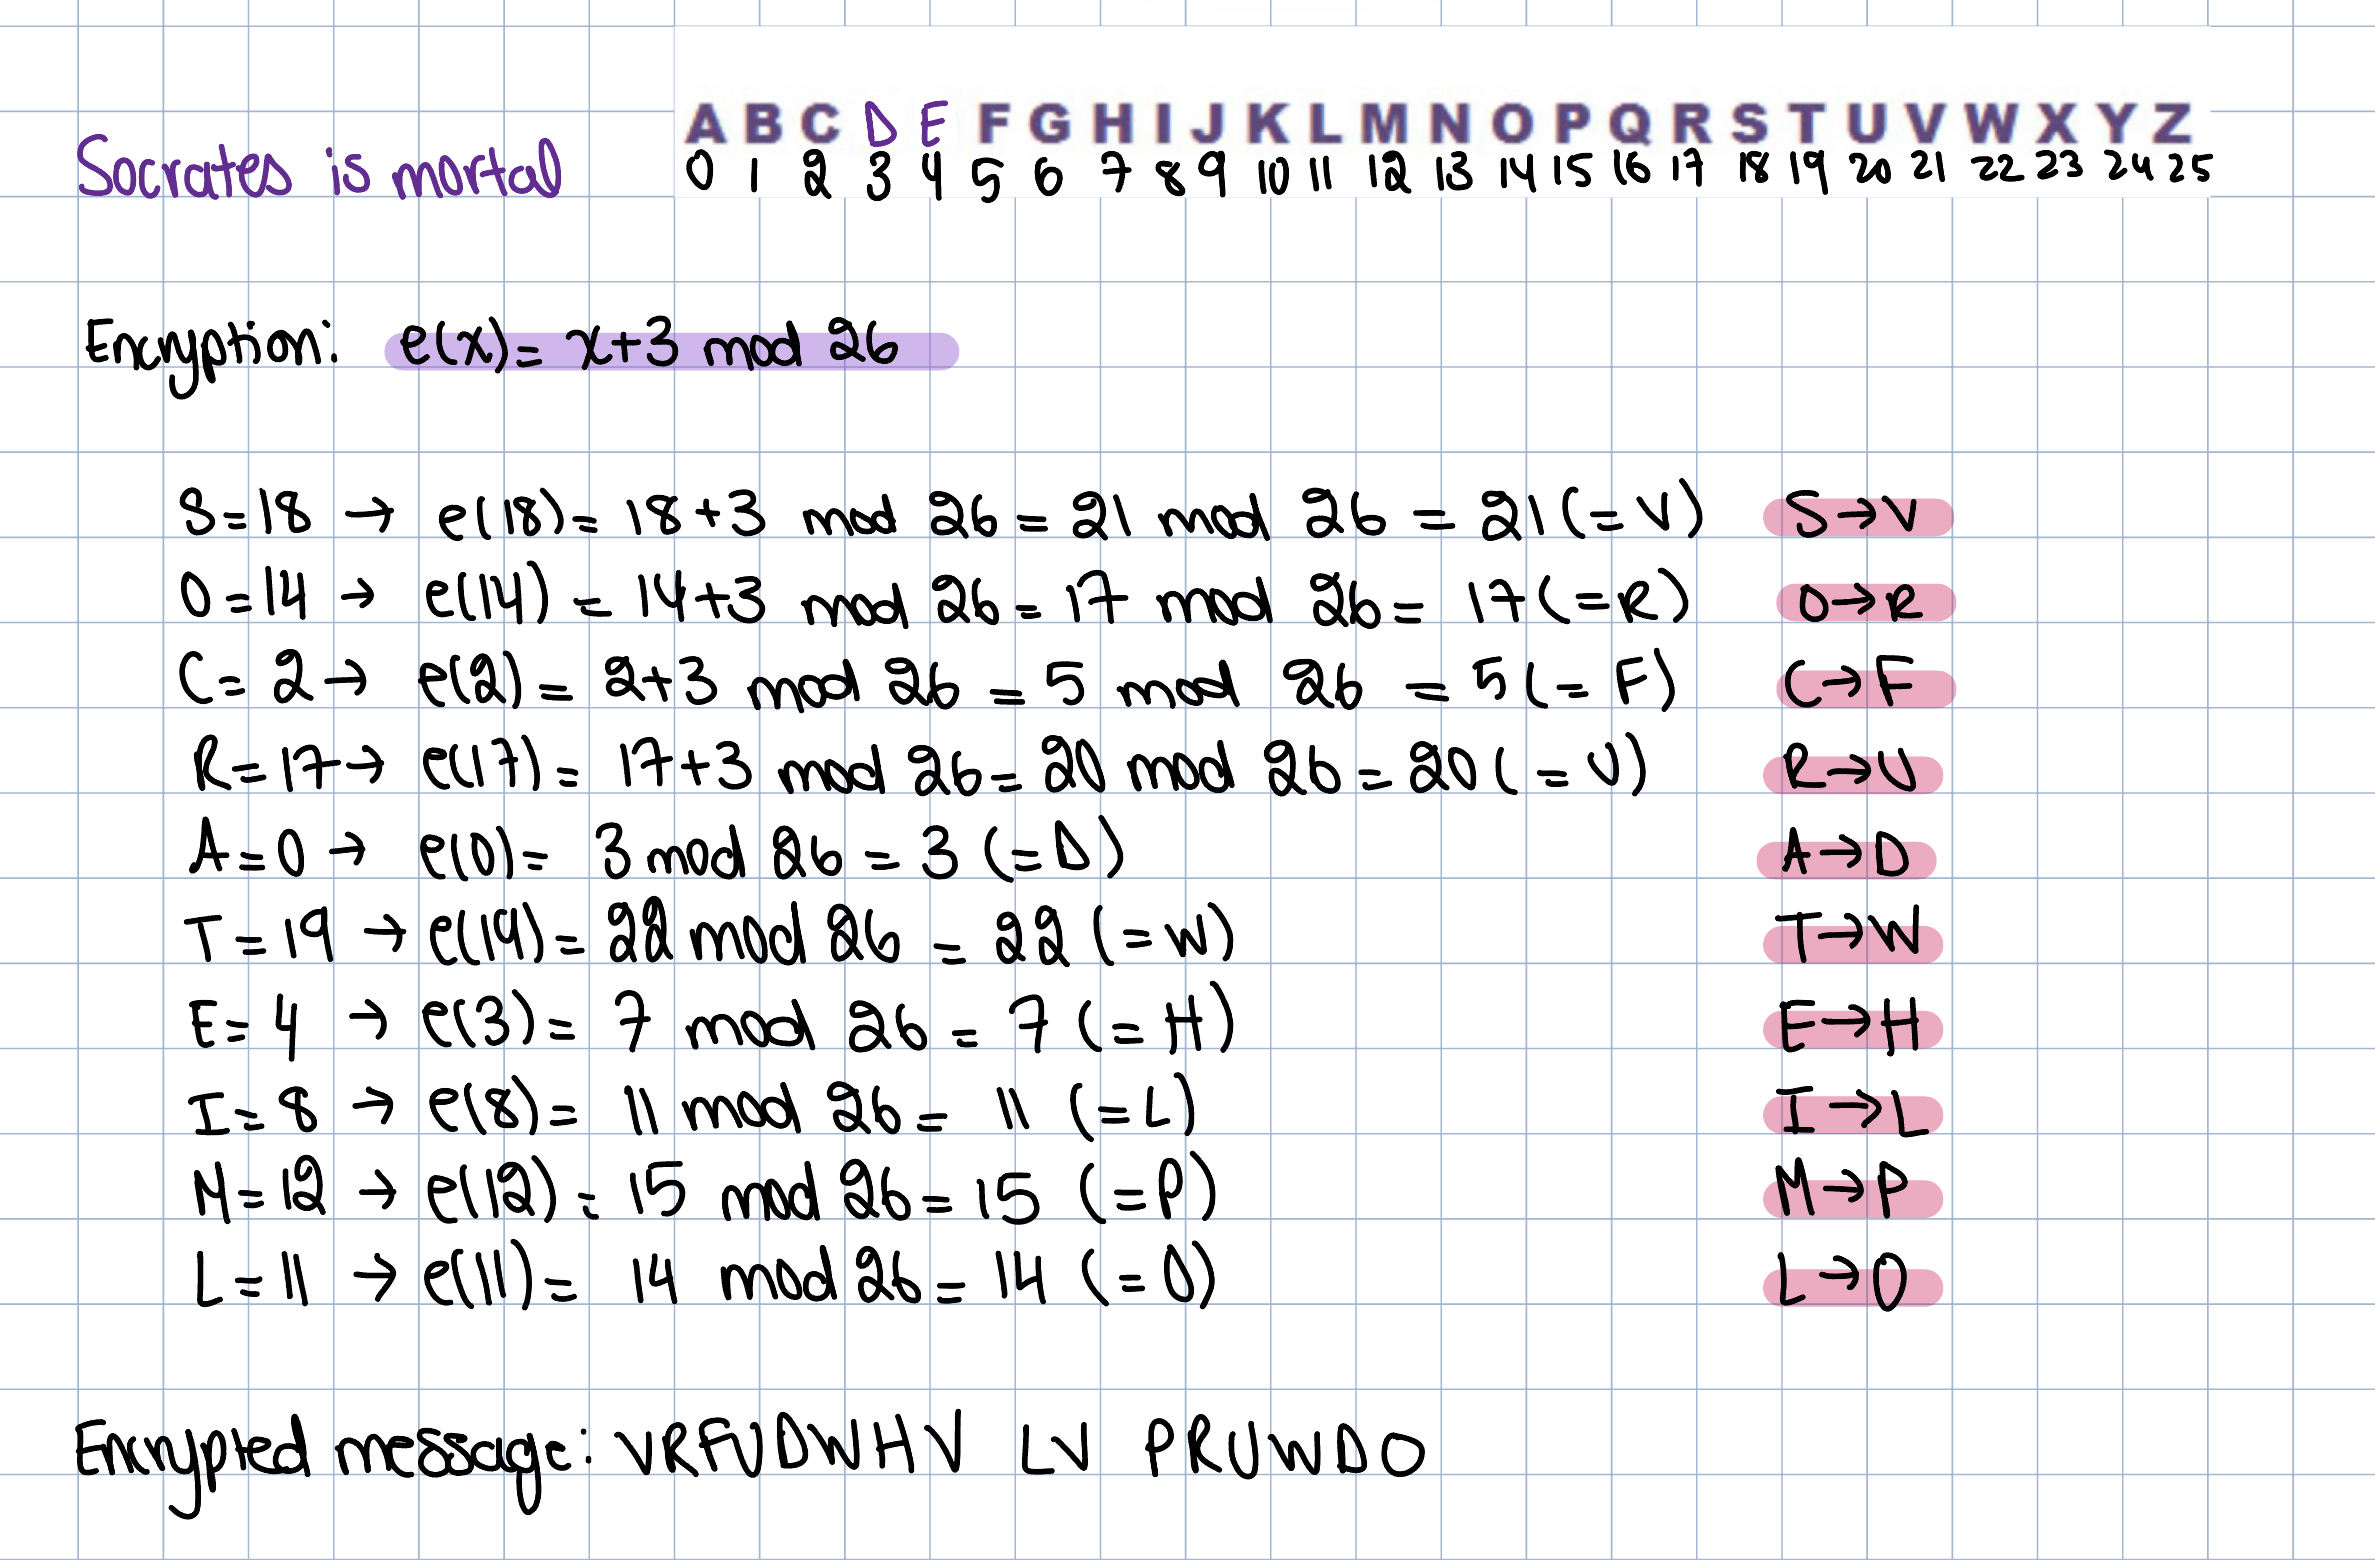 A B C D E F G H I J K L M N O P Q R S T U V W X Y Z
Socrates is mortal 0 1 2 3 4 5 6 7 8 9 10 11 12 13 14 15 16 17 18 19 20 21 22 23 24 25
Encryption: e(x)= x+3 mod 26
S=18 → e(18)= 18+3 mod 26 = 21 mod 26 = 21 (=V) S→V
O=14 → e(14) = 14+3 mod 26 = 17 mod 26 = 17 (=R) O→R
C= 2 → e(2) = 2+3 mod 26 = 5 mod 26 = 5 (=F) C→F
R=17 → e(17) = 17+3 mod 26 = 20 mod 26 = 20 (=U) R→U
A=0 → e(0)= 3 mod 26 = 3 (=D) A→D
T=19 → e(19)= 22 mod 26 = 22 (=W) T→W
E= 4 → e(3)= 7 mod 26 = 7 (=H) E→H
I= 8 → e(8)= 11 mod 26 = 11 (=L) I→L
M=12 → e(12)= 15 mod 26 = 15 (=P) M→P
L=11 → e(11)= 14 mod 26 = 14 (=O) L→O
Encrypted message: VRFUDWHV LV PRUWDO